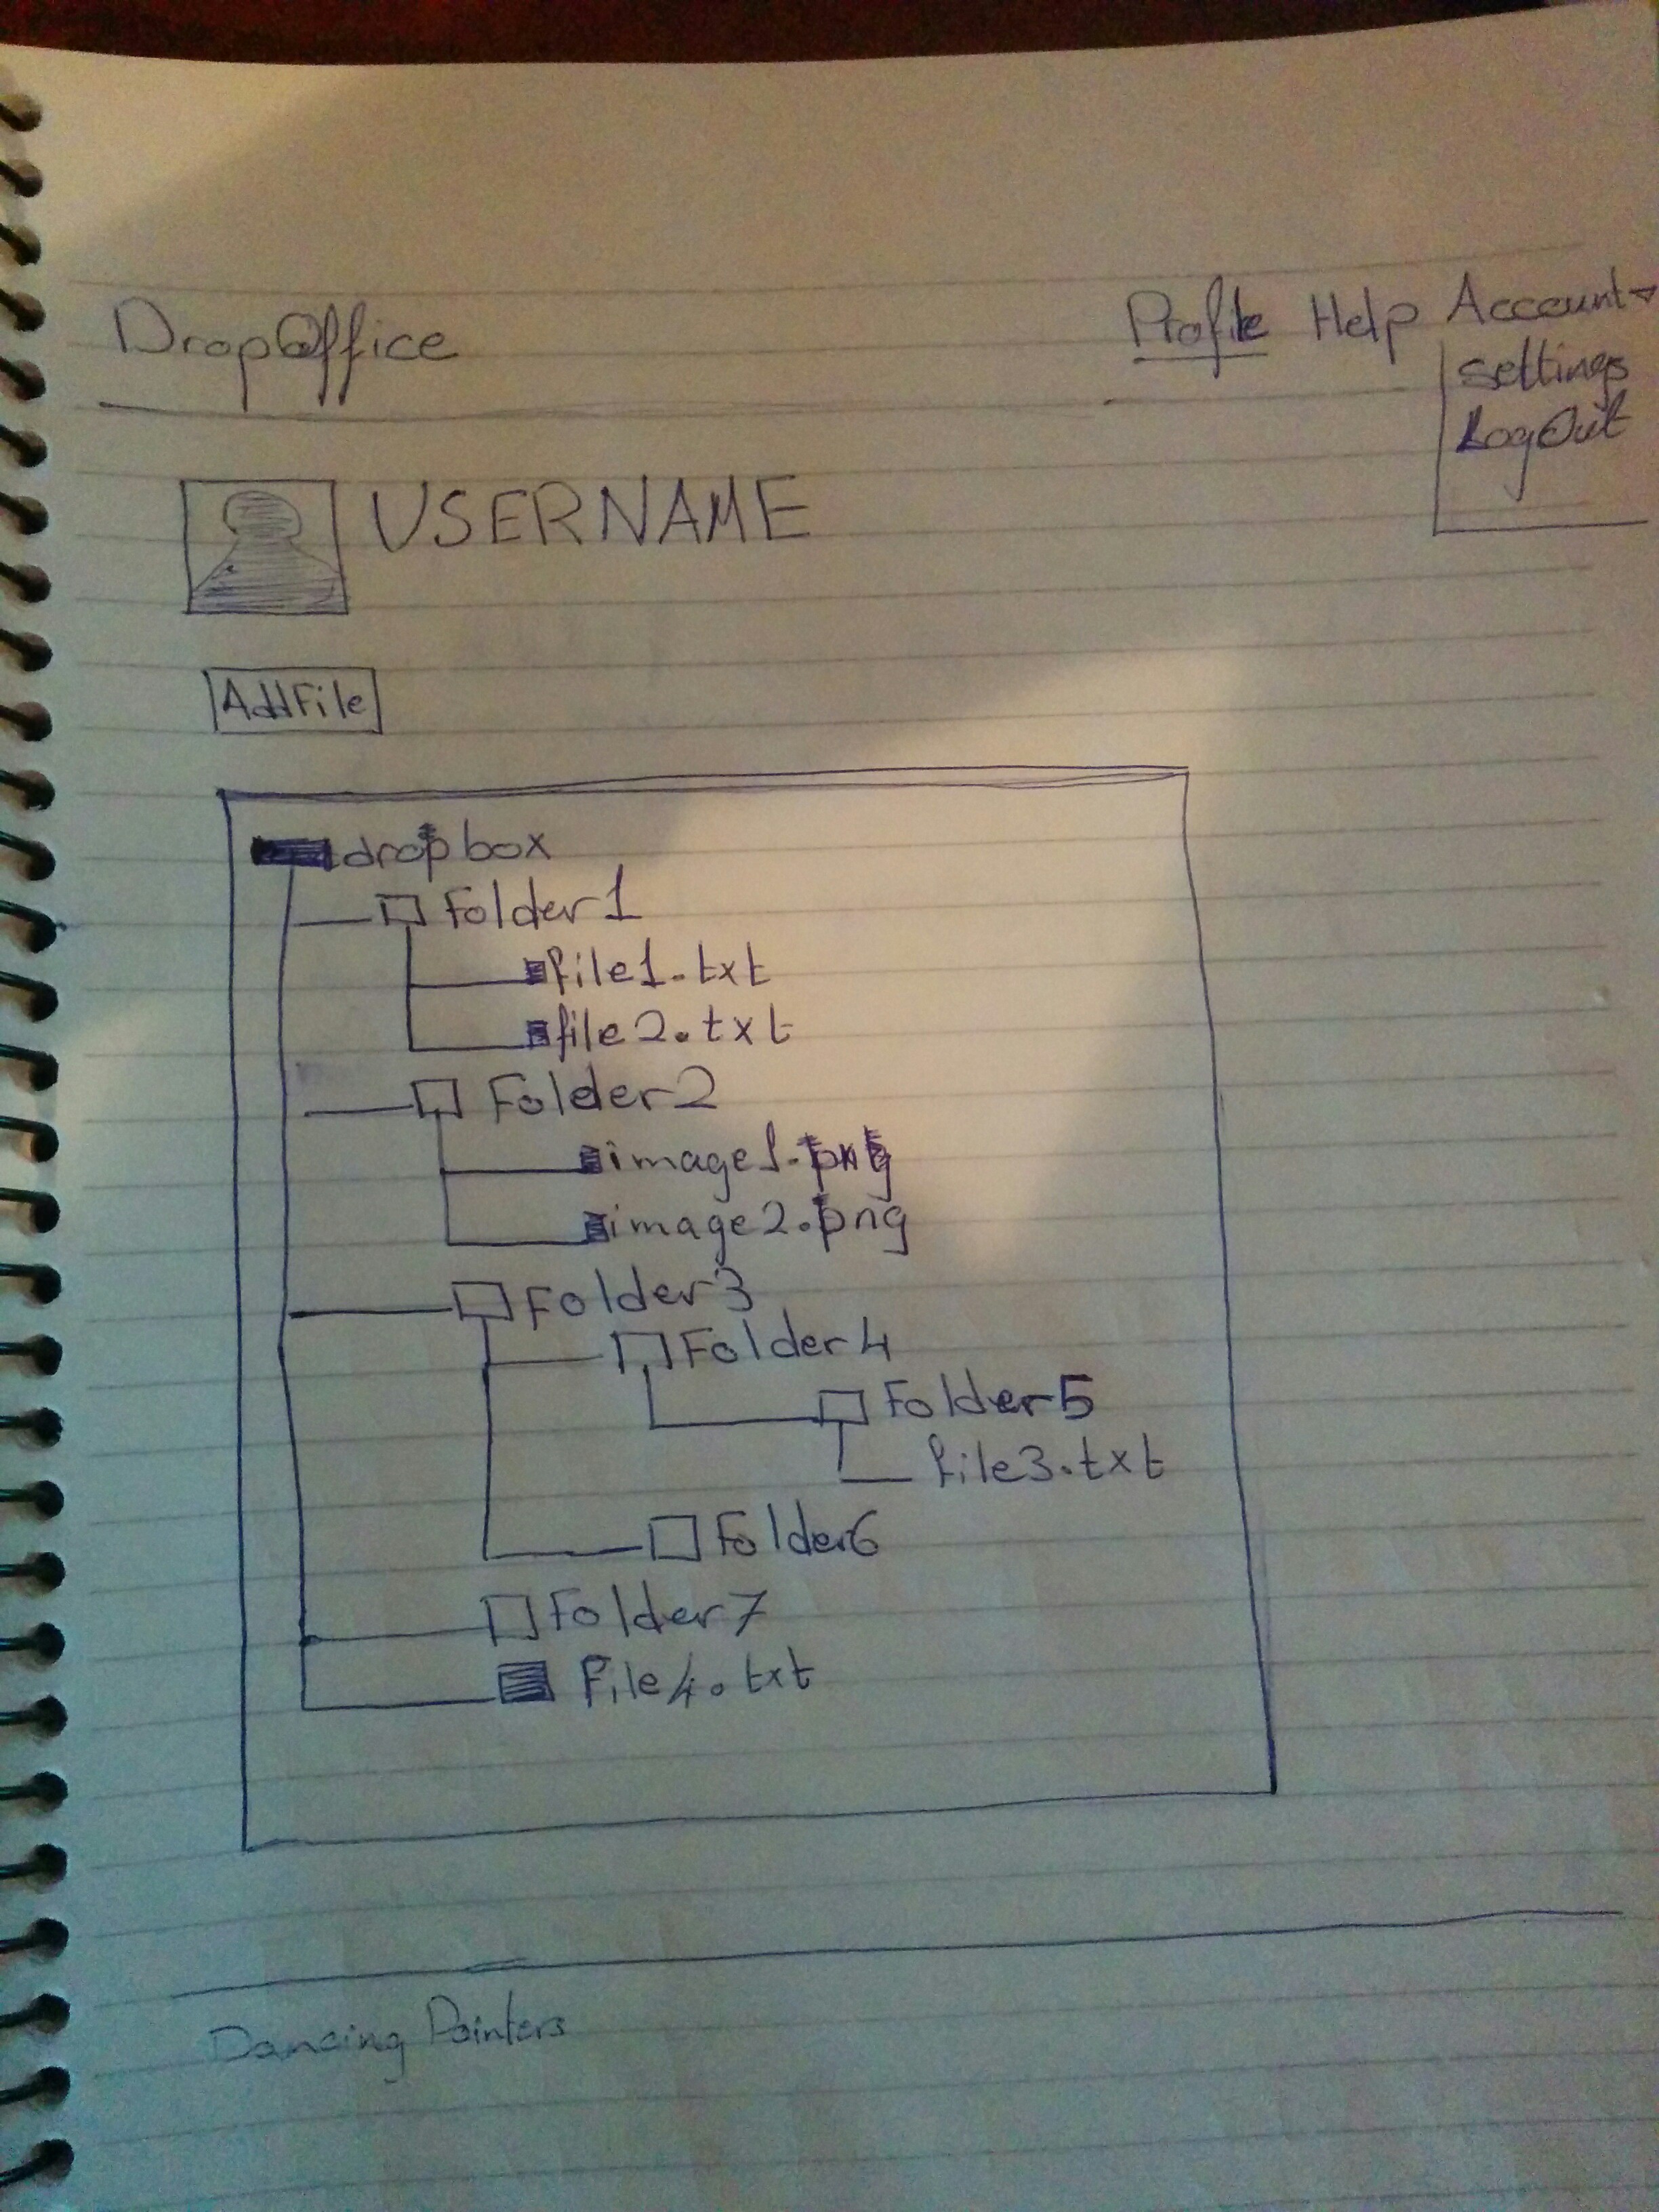 DropOffice Profile Help Account
settings
LogOut
USERNAME
AddFile
dropbox
Folder1
file1.txt
file2.txt
Folder2
image1.png
image2.png
Folder3
Folder4
Folder5
file3.txt
Folder6
Folder7
file4.txt
Dancing Pointers